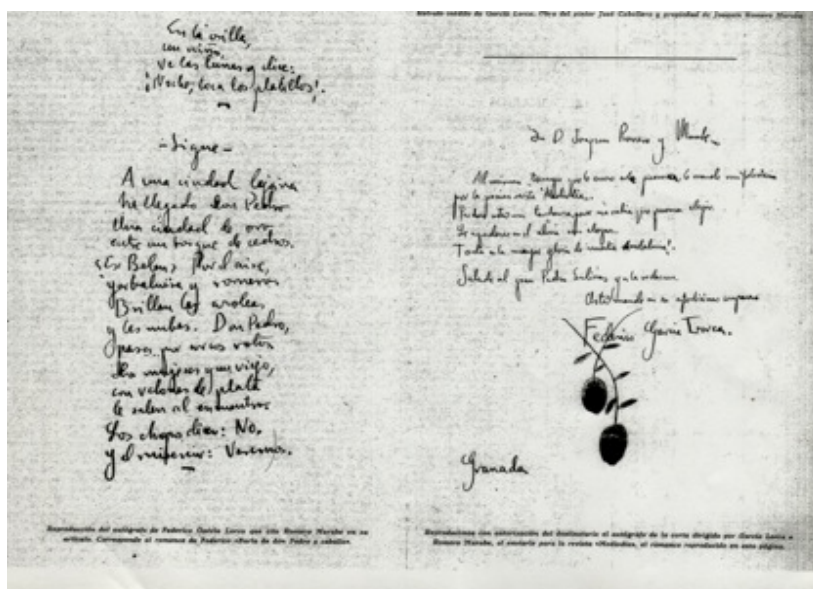 En la orilla,
un niño,
ve las lunas y dice:
¡Noche; toca los platillos!.
- Sigue -
A una ciudad lejana
ha llegado Don Pedro
Una ciudad de oro
entre un bosque de cedros.
¿Es Belen? Por el aire,
yerbaluisa y romero
Brillan las azoteas
y las nubes. Don Pedro,
pasa por arcos rotos
Dos mujeres y un viejo,
con velones de plata
le salen al encuentro.
Los chopos dicen: No.
y el ruiseñor: Veremos.
Reproducción del autógrafo de Federico García Lorca que cita Romero Murube en su
artículo. Corresponde al romance de Federico «Burla de don Pedro a caballo».
Retrato inédito de García Lorca. Obra del pintor José Caballero y propiedad de Joaquín Romero Murube
Sr D. Joaquin Romero y Murube
Al mismo tiempo que la
por la
Todo a la mayor gloria de nuestra Andalucia!.
Saludo al gran Pedro Salinas
Federico García Lorca.
Granada
Reproducimos con autorización del destinatario el autógrafo de la carta dirigida por García Lorca a
Romero Murube, al enviarle para la revista «Mediodía», el romance reproducido en esta página.